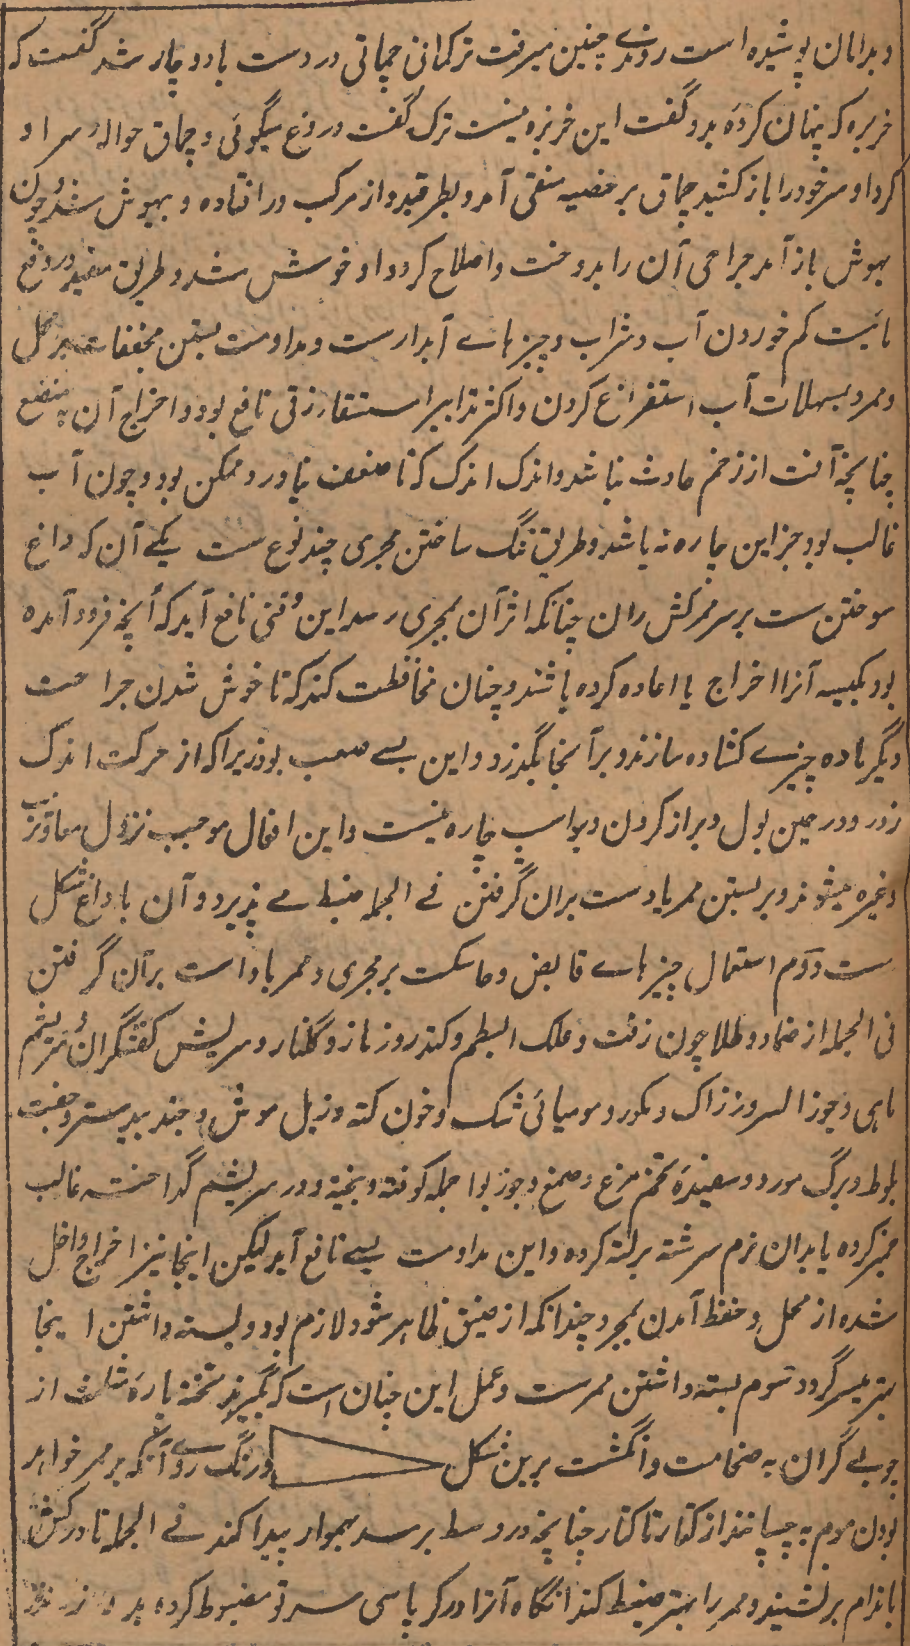 و بدامان پوشیده است روزے چنین میرفت ترکمانی چماتی در دست بادو چار شد گفت که
خربزه که پنهان کردهٔ بده گفت این خربزه نیست ترک گفت دروغ میگوئی و چماق حواله سر او
کرد او سر خود را باز کشید چماق بر خصیه سقی آمد و بطرقید و از مرکب در افتاده و بیهوش شد و چون
بهوش باز آمد جراحی آن را بدوخت و اصلاح کرد و او خوش شد و طریق مفید در دفع
مائیت کم خوردن آب و شراب و چیزهاے آبدارست و مداومت بستن مجففات بر محل
و ممر و بمسهلات آب استفراغ کردن و اکثر تدابیر استسقاء زقی نافع بود و اخراج آن بمبضع
چنانچه آفت از زخم حادث نباشد و اندک اندک که تا ضعف نیاورد ممکن بود و چون آب
غالب بود جز این چاره نه باشد و طریق تنگ ساختن مجری چند نوع ست یکے آن که داغ
سوختن ست بر سر ممر کش ران چنانکه اثر آن بمجری رسد این وقتی نافع آید که آنچه فرود آمده
بود بکیسه آنرا اخراج یا اعاده کرده باشند و چنان محافظت کنند که تا خوش شدن جراحت
دیگر ماده چیزے کشاده سازند و بر آنجا بگذرد و این بسے صعب بود زیرا که از حرکت اندک
زور و در حین بول و براز کردن و بواسیر چاره نیست و این افعال موجب نزول معا و ثرب
و غیره میشوند و بر بستن ممر یا دست بران گرفتن فے الجمله ضبط مے پذیرد و آن با داغ شکل
ست دوم استعمال چیزهاے قابض و ماسکت بر مجری و ممر باداست بر آن گرفتن
فی الجمله از ضماد و طلا چون زفت و علک البطم و کندر و زمازو گلنار و سریش کفشگران و سریشم
ماهی و جوز السرو زاک و مکورد و مومیائی شک و خون کته و زبل موش و جند بیدستر و جفت
بلوط و برگ مورد و سفیدهٔ تخم مرغ و صمغ و جوز بوا جمله کوفته و بیخته و در سریشم گداخته غالب
خمیر کرده یا بدان نرم سرشته بر لته کرده و این مداومت بسے نافع آید لیکن اینجا نیز اخراج داخل
شده از محل و حفظ آمدن بمجرد چندانکه از ضیق ظاهر شود لازم بود و بسته داشتن اینجا
بهتر میسر گردد سوم بسته داشتن ممرست و عمل این چنان است که بگیرند تخته پارهٔ مثلث از
چوبے گران به ضخامت دو انگشت برین شکل و رنگ روے آنکه بر ممر خواهد
بودن موم به چسپانند از کنار تا کنار چنانچه در وسط برسد هموار پیدا کند فے الجمله تا در کش
باندام بر نشیند و ممر را بهتر ضبط کند انگاه آنرا در کرباسی سر تو مضبوط کرده